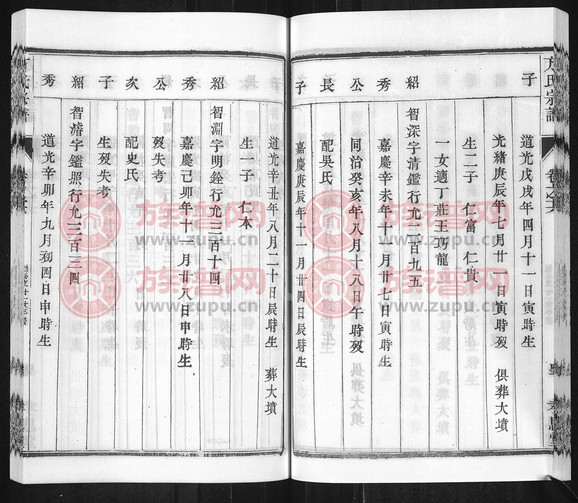 方氏宗譜
子
道光戊戌年四月十一日寅時生
光緒庚辰年七月廿一日寅時歿 俱葬大墳
生二子 仁富 仁貴
一女適丁莊王巧龍
紹
智深字清鑑行允二百九五
秀
嘉慶辛未年十一月廿七日寅時生
公
同治癸亥年八月十八日午時歿
長
配吳氏 俱葬大墳
子
嘉慶庚辰年十一月廿四日辰時生
道光辛丑年八月二十日辰時生 葬大墳
生一子 仁本
紹
智淵字明鑑行允三百十四
秀
嘉慶己卯年十一月廿八日申時生
公
歿失考
次
配史氏
子
生歿失考
紹
智濬字鑑照行允三百三四
秀
道光辛卯年九月初四日申時生
族普网
www.zupu.cn
族普网
www.zupu.cn
族普网
www.zupu.cn
族普网
www.zupu.cn